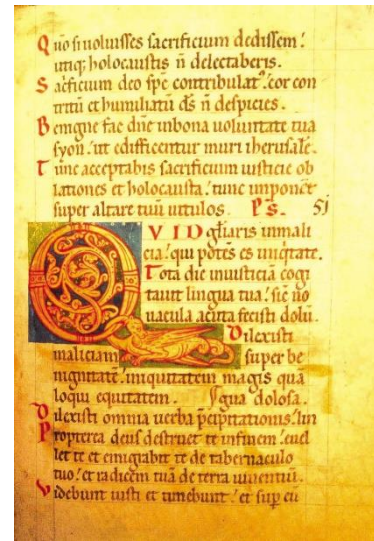 Quo si uoluisses sacrificium dedissem:
utiq; holocaustis ñ delectaberis.
Sacficium deo spc contribulatꝰ: cor con
tritũ et humiliatũ d̃s ñ despicies.
Benigne fac dñe in bona uoluntate tua
syon: ut edificentur muri iherusalẽ.
Tunc acceptabis sacrificium iusticie ob
lationes et holocausta: tunc imponẽt
super altare tuũ uitulos. Ps. 51
QVID gl̃iaris in mali
cia: qui potẽs es iniq̃tate.
Tota die iniusticiã cogi
tauit lingua tua: sic̃ no
uacula acuta fecisti dolũ.
Dilexisti
maliciam super be
nignitatẽ: iniquitatem magis quã
loqui equitatem. gua dolosa.
Dilexisti omnia uerba p̃cipitationis: lin
Propterea deus destruet te in finem: euel
let te et emigrabit te de tabernaculo
tuo: et radicem tuã de terra uiuentiũ.
Videbunt iusti et timebunt: et sup eũ